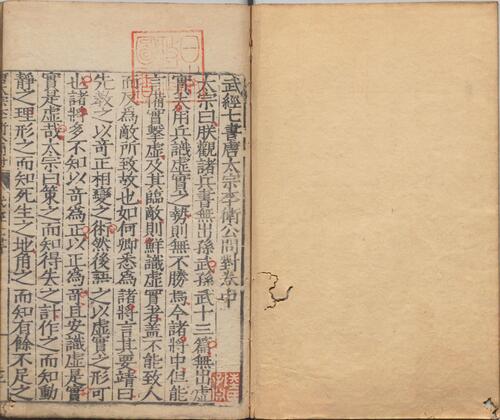 武經七書唐太宗李衛公問對卷中
太宗曰朕觀諸兵書無出孫武孫武十三篇無出虛
實夫用兵識虛實之勢則無不勝焉今諸將中但能
言備實擊虛及其臨敵則鮮識虛實者蓋不能致人
而反為敵所致故也如何卿悉為諸將言其要靖曰
先教之以奇正相變之術然後語之以虛實之形可
也諸將多不知以奇為正以正為奇且安識虛是實
實是虛哉太宗曰策之而知得失之計作之而知動
靜之理形之而知死生之地角之而知有餘不足之